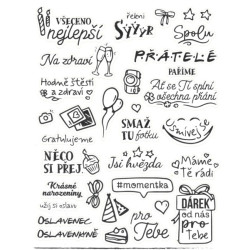 všechno
nejlepší
řešení
SÝYÝR
Spolu
Na zdraví
PŘÁTELÉ
PAŘÍME
Hodně štěstí
a zdraví
Ať se Ti splní
všechna přání
Gratulujeme
SMAŽ
TU fotku
Úsměv
NĚCO
SI PŘEJ
Jsi hvězda
Máme
Tě rádi
Krásné
narozeniny
#momentka
užij si oslavu
DÁREK
od nás
pro
Tebe
OSLAVENEC
OSLAVENKYNĚ
pro
Tebe